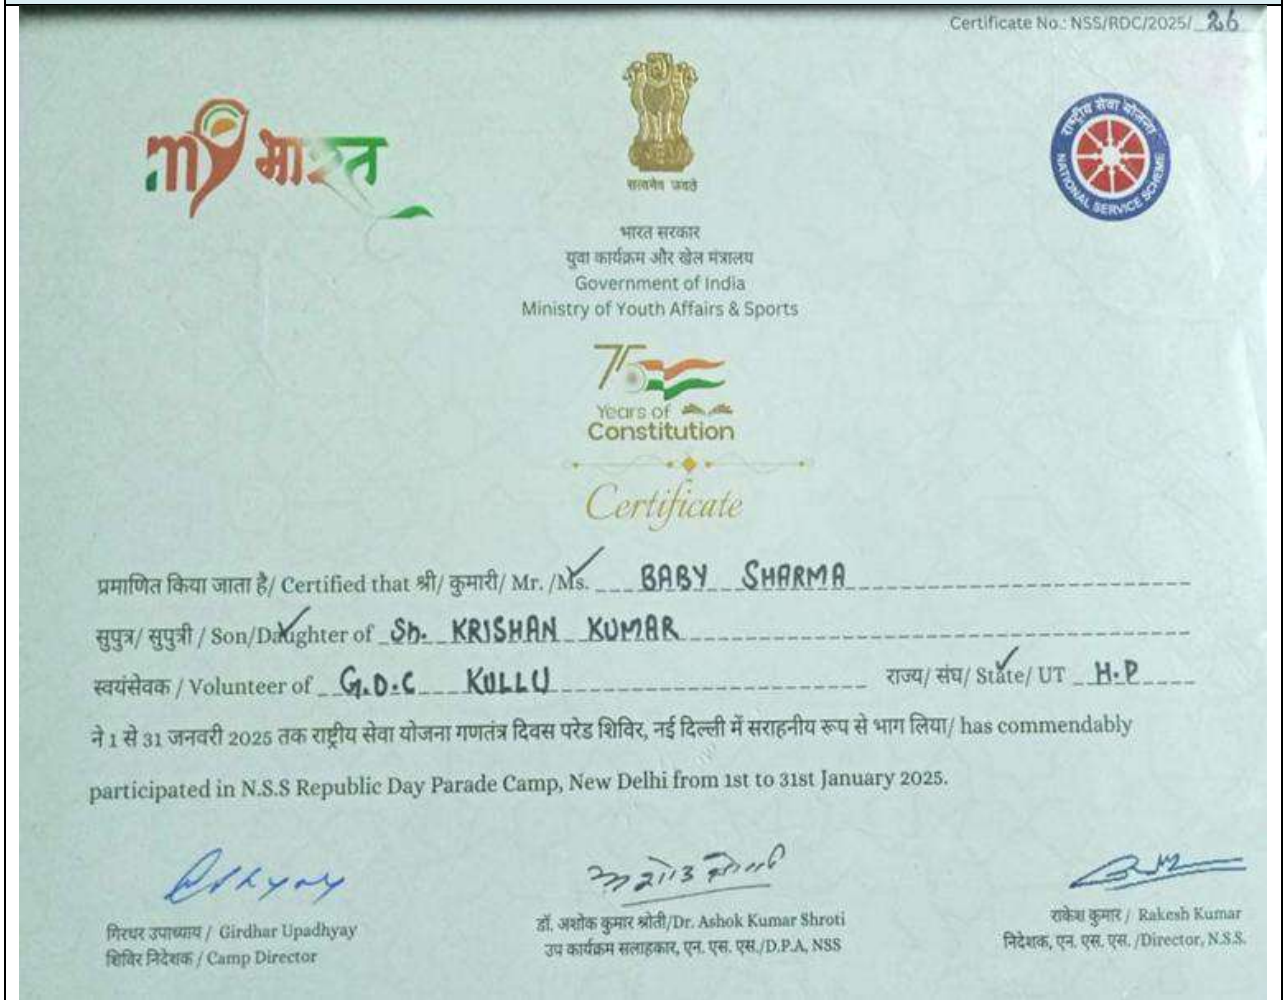 Certificate No.: NSS/RDC/2025/ 26
my भारत
सत्यमेव जयते
राष्ट्रीय सेवा योजना
NATIONAL SERVICE SCHEME
भारत सरकार
युवा कार्यक्रम और खेल मंत्रालय
Government of India
Ministry of Youth Affairs & Sports
75
Years of
Constitution
Certificate
प्रमाणित किया जाता है/ Certified that श्री/ कुमारी/ Mr. /Ms. BABY SHARMA
सुपुत्र/ सुपुत्री / Son/Daughter of Sh. KRISHAN KUMAR
स्वयंसेवक / Volunteer of G.D.C KULLU राज्य/ संघ/ State/ UT H.P
ने 1 से 31 जनवरी 2025 तक राष्ट्रीय सेवा योजना गणतंत्र दिवस परेड शिविर, नई दिल्ली में सराहनीय रूप से भाग लिया/ has commendably
participated in N.S.S Republic Day Parade Camp, New Delhi from 1st to 31st January 2025.
गिरधर उपाध्याय / Girdhar Upadhyay
शिविर निदेशक / Camp Director
डॉ. अशोक कुमार श्रोती/Dr. Ashok Kumar Shroti
उप कार्यक्रम सलाहकार, एन. एस. एस./D.P.A, NSS
राकेश कुमार / Rakesh Kumar
निदेशक, एन. एस. एस. /Director, N.S.S.